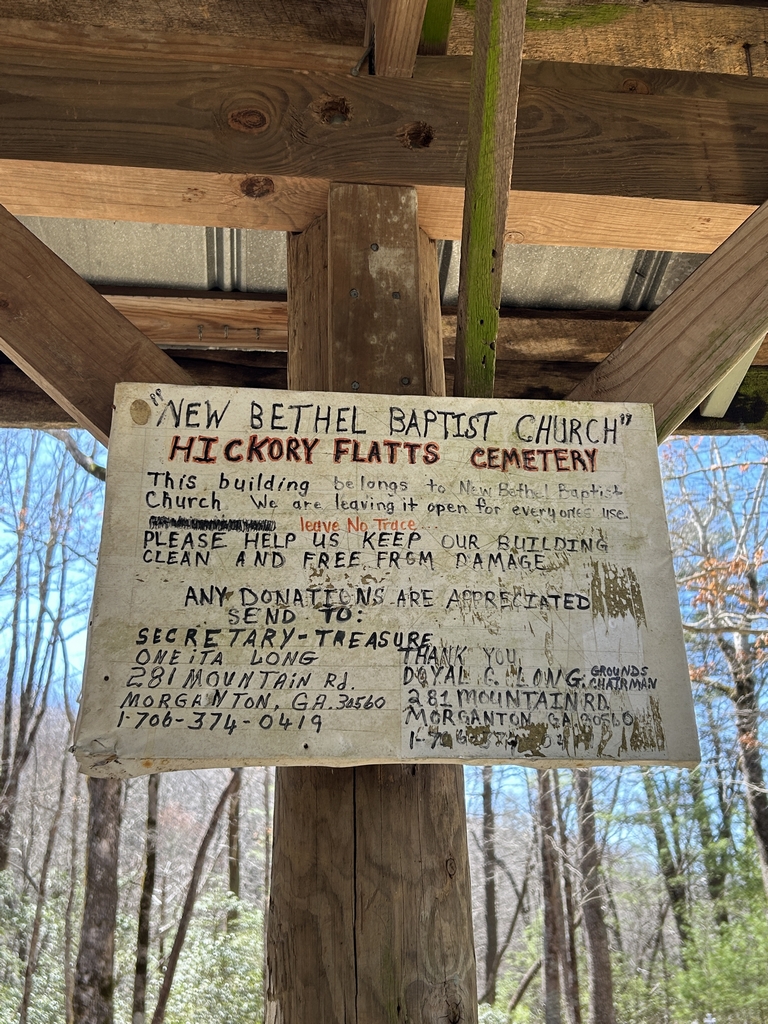 "NEW BETHEL BAPTIST CHURCH"
HICKORY FLATTS CEMETERY
This building belongs to New Bethel Baptist
Church We are leaving it open for everyones use
leave No Trace...
PLEASE HELP US KEEP OUR BUILDING
CLEAN AND FREE FROM DAMAGE
ANY DONATIONS ARE APPRECIATED
SEND TO:
SECRETARY-TREASURE
ONEITA LONG
281 MOUNTAIN Rd.
MORGANTON, GA. 30560
1-706-374-0419
THANK YOU
DOYAL G. LONG. GROUNDS CHAIRMAN
281 MOUNTAIN RD
MORGANTON, GA 30560